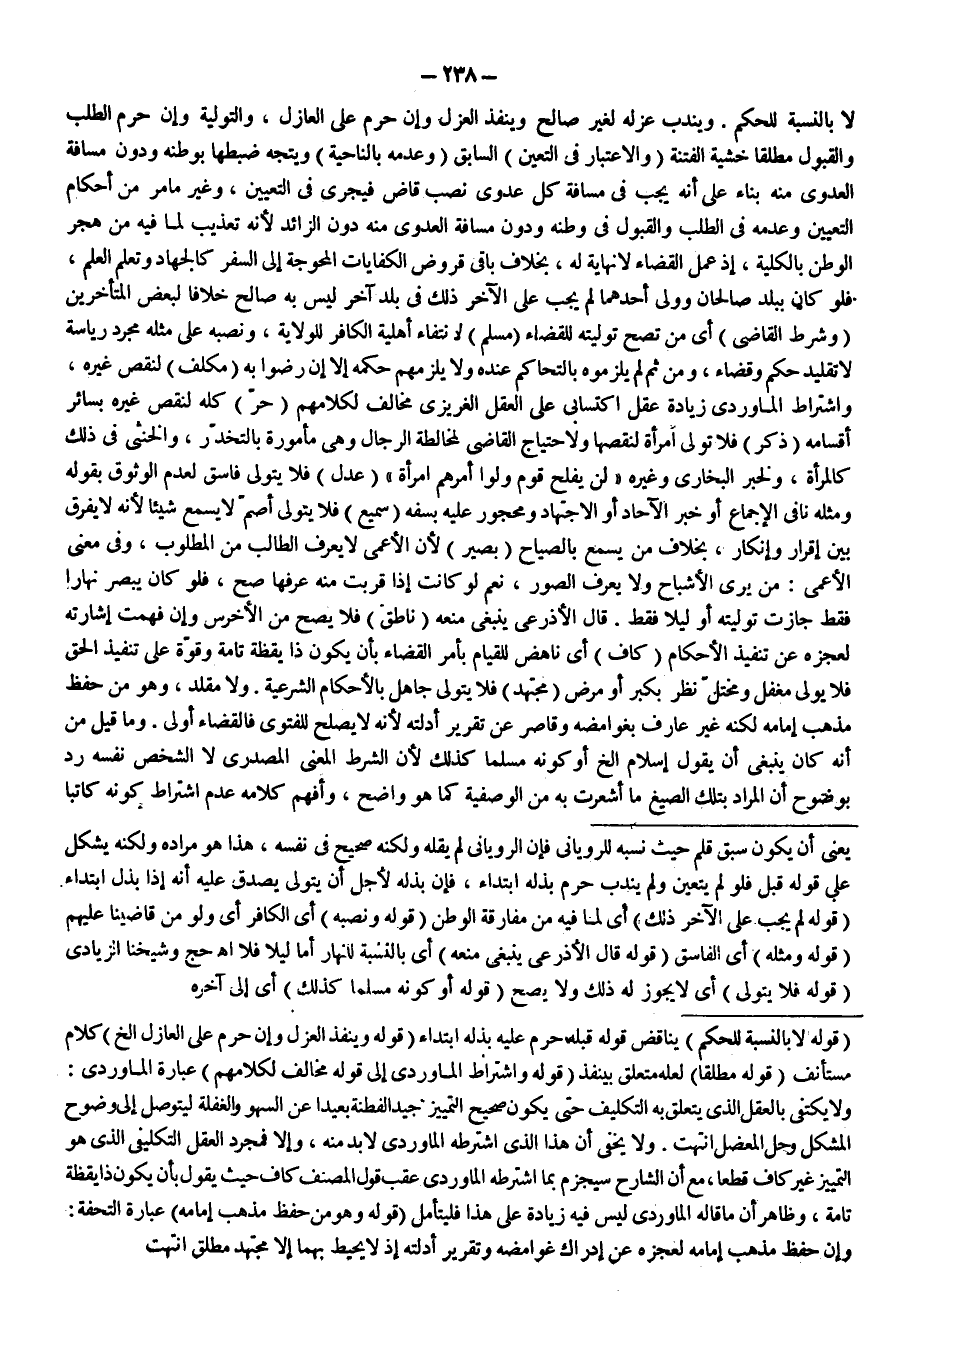 — ٢٣٨ —
لا بالنسبة للحكم . ويندب عزله لغير صالح وينفذ العزل وإن حرم على العازل ، والتولية وإن حرم الطلب
والقبول مطلقا خشية الفتنة ( والاعتبار فى التعين ) السابق ( وعدمه بالناحية ) ويتجه ضبطها بوطنه ودون مسافة
العدوى منه بناء على أنه يجب فى مسافة كل عدوى نصب قاض فيجرى فى التعيين ، وغير مامر من أحكام
التعيين وعدمه فى الطلب والقبول فى وطنه ودون مسافة العدوى منه دون الزائد لأنه تعذيب لما فيه من هجر
الوطن بالكلية ، إذ عمل القضاء لانهاية له ، بخلاف باقى قروض الكفايات المحوجة إلى السفر كالجهاد وتعلم العلم ،
فلو كان ببلد صالحان وولى أحدهما لم يجب على الآخر ذلك فى بلد آخر ليس به صالح خلافا لبعض المتأخرين
( وشرط القاضى ) أى من تصح توليته للقضاء ( مسلم ) لانتفاء أهلية الكافر للولاية ، ونصبه على مثله مجرد رياسة
لاتقليد حكم وقضاء ، ومن ثم لم يلزموه بالتحاكم عنده ولا يلزمهم حكمه إلا إن رضوا به ( مكلف ) لنقص غيره ،
واشتراط الماوردى زيادة عقل اكتسابى على العقل الغريزى مخالف لكلامهم ( حرّ ) كله لنقص غيره بسائر
أقسامه ( ذكر ) فلا تولى امرأة لنقصها ولاحتياج القاضى لمخالطة الرجال وهى مأمورة بالتخدّر ، والخنثى فى ذلك
كالمرأة ، ولخبر البخارى وغيره « لن يفلح قوم ولوا أمرهم امرأة » ( عدل ) فلا يتولى فاسق لعدم الوثوق بقوله
ومثله نافى الإجماع أو خبر الآحاد أو الاجتهاد ومحجور عليه بسفه ( سميع ) فلا يتولى أصمّ لايسمع شيئا لأنه لايفرق
بين إقرار وإنكار ، بخلاف من يسمع بالصياح ( بصير ) لأن الأعمى لايعرف الطالب من المطلوب ، وفى معنى
الأعمى : من يرى الأشباح ولا يعرف الصور ، نعم لو كانت إذا قربت منه عرفها صح ، فلو كان يبصر نهارا
فقط جازت توليته أو ليلا فقط . قال الأذرعى ينبغى منعه ( ناطق ) فلا يصح من الأخرس وإن فهمت إشارته
لعجزه عن تنفيذ الأحكام ( كاف ) أى ناهض للقيام بأمر القضاء بأن يكون ذا يقظة تامة وقوّة على تنفيذ الحق
فلا يولى مغفل ومختلّ نظر بكبر أو مرض ( مجتهد ) فلا يتولى جاهل بالأحكام الشرعية . ولا مقلد ، وهو من حفظ
مذهب إمامه لكنه غير عارف بغوامضه وقاصر عن تقرير أدلته لأنه لايصلح للفتوى فالقضاء أولى . وما قيل من
أنه كان ينبغى أن يقول إسلام الخ أو كونه مسلما كذلك لأن الشرط المعنى المصدرى لا الشخص نفسه رد
بوضوح أن المراد بتلك الصيغ ما أشعرت به من الوصفية كما هو واضح ، وأفهم كلامه عدم اشتراط كونه كاتبا
يعنى أن يكون سبق قلم حيث نسبه للرويانى فإن الرويانى لم يقله ولكنه صحيح فى نفسه ، هذا هو مراده ولكنه يشكل
على قوله قبل فلو لم يتعين ولم يندب حرم بذله ابتداء ، فإن بذله لأجل أن يتولى يصدق عليه أنه إذا بذل ابتداء .
( قوله لم يجب على الآخر ذلك ) أى لما فيه من مفارقة الوطن ( قوله ونصبه ) أى الكافر أى ولو من قاضينا عليهم
( قوله ومثله ) أى الفاسق ( قوله قال الأذرعى ينبغى منعه ) أى بالنسبة للنهار أما ليلا فلا اه حج وشيخنا الزيادى
( قوله فلا يتولى ) أى لايجوز له ذلك ولا يصح ( قوله أو كونه مسلما كذلك ) أى إلى آخره
( قوله لا بالنسبة للحكم ) يناقض قوله قبله حرم عليه بذله ابتداء ( قوله وينفذ العزل وإن حرم على العازل الخ ) كلام
مستأنف ( قوله مطلقا ) لعله متعلق بينفذ ( قوله واشتراط الماوردى إلى قوله مخالف لكلامهم ) عبارة الماوردى :
ولا يكتفى بالعقل الذى يتعلق به التكليف حتى يكون صحيح التمييز جيد الفطنة بعيدا عن السهو والغفلة ليتوصل إلى وضوح
المشكل وحل المعضل انتهت . ولا يخفى أن هذا الذى اشترطه الماوردى لابد منه ، وإلا فمجرد العقل التكليفى الذى هو
التمييز غير كاف قطعا ، مع أن الشارح سيجزم بما اشترطه الماوردى عقب قول المصنف كاف حيث يقول بأن يكون ذا يقظة
تامة ، وظاهر أن ماقاله الماوردى ليس فيه زيادة على هذا فليتأمل ( قوله وهو من حفظ مذهب إمامه ) عبارة التحفة :
وإن حفظ مذهب إمامه لعجزه عن إدراك غوامضه وتقرير أدلته إذ لايحيط بهما إلا مجتهد مطلق انتهت